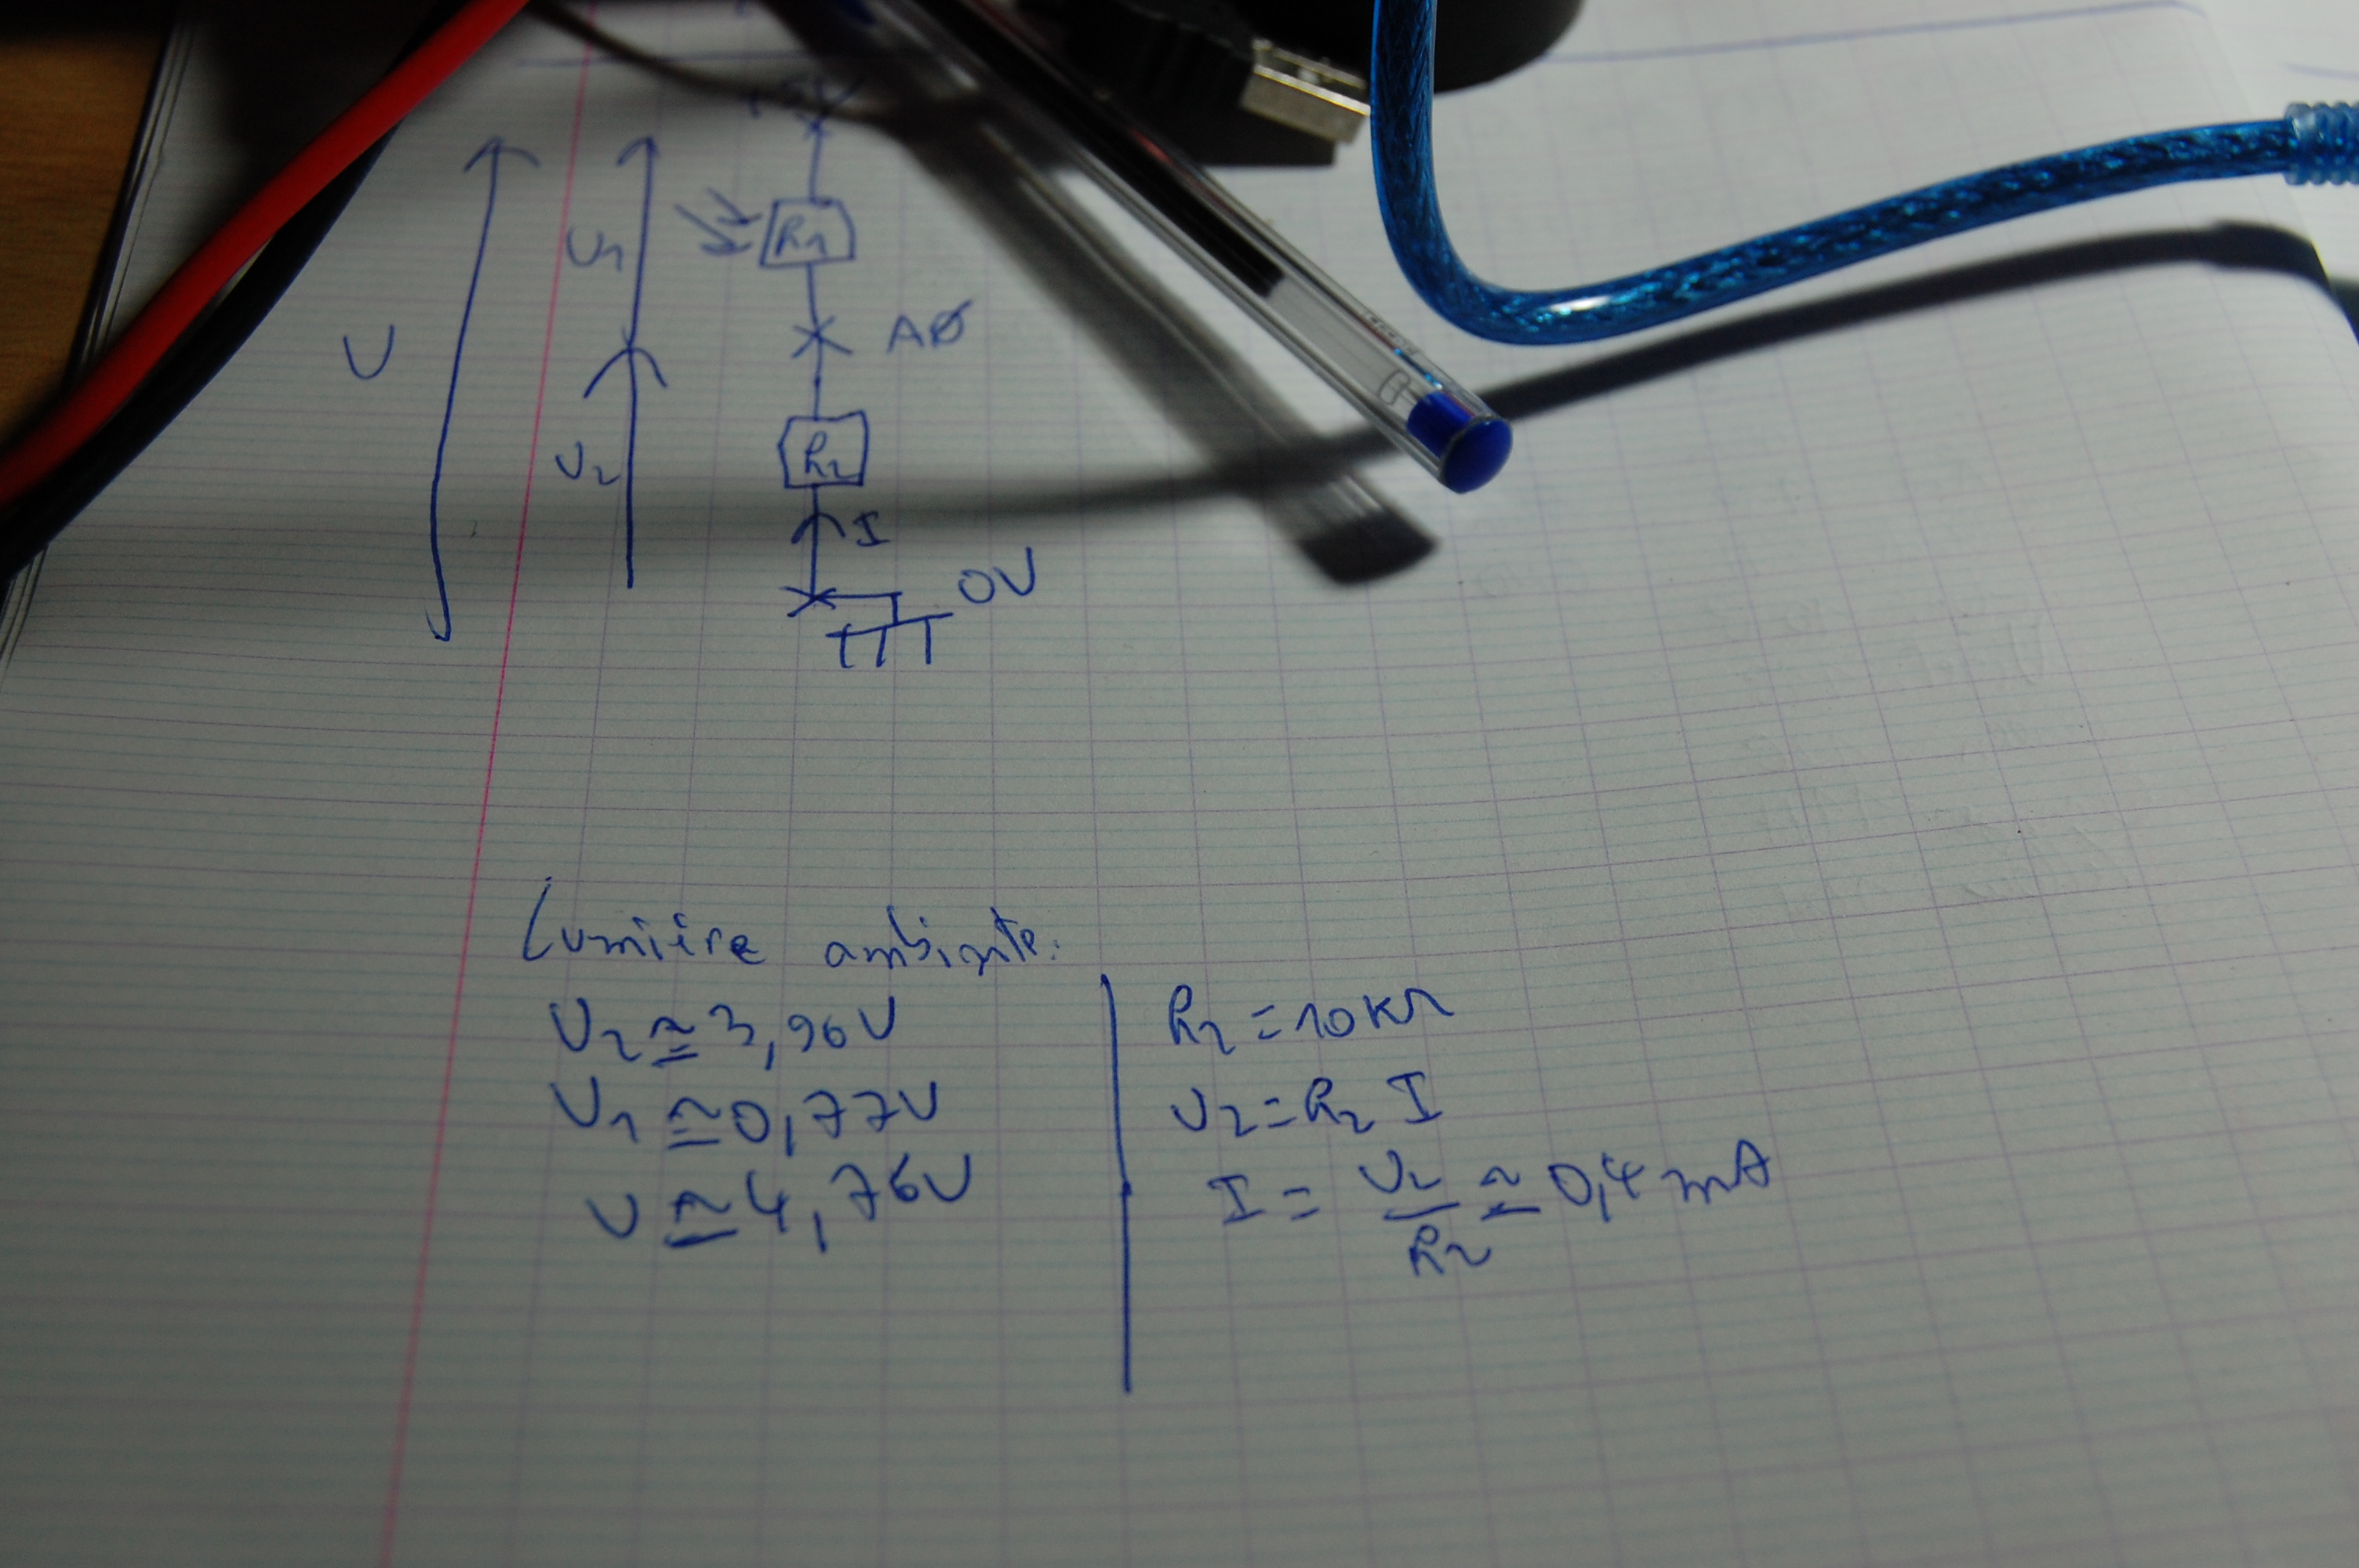 U
U1
R1
AØ
U2
R2
I
0V
Lumière ambiante:
U2 ≅ 3,96V
U1 ≅ 0,77V
U ≅ 4,76V
R2 = 10KΩ
U2 = R2 I
I = U2/R2 ≅ 0,4 mA